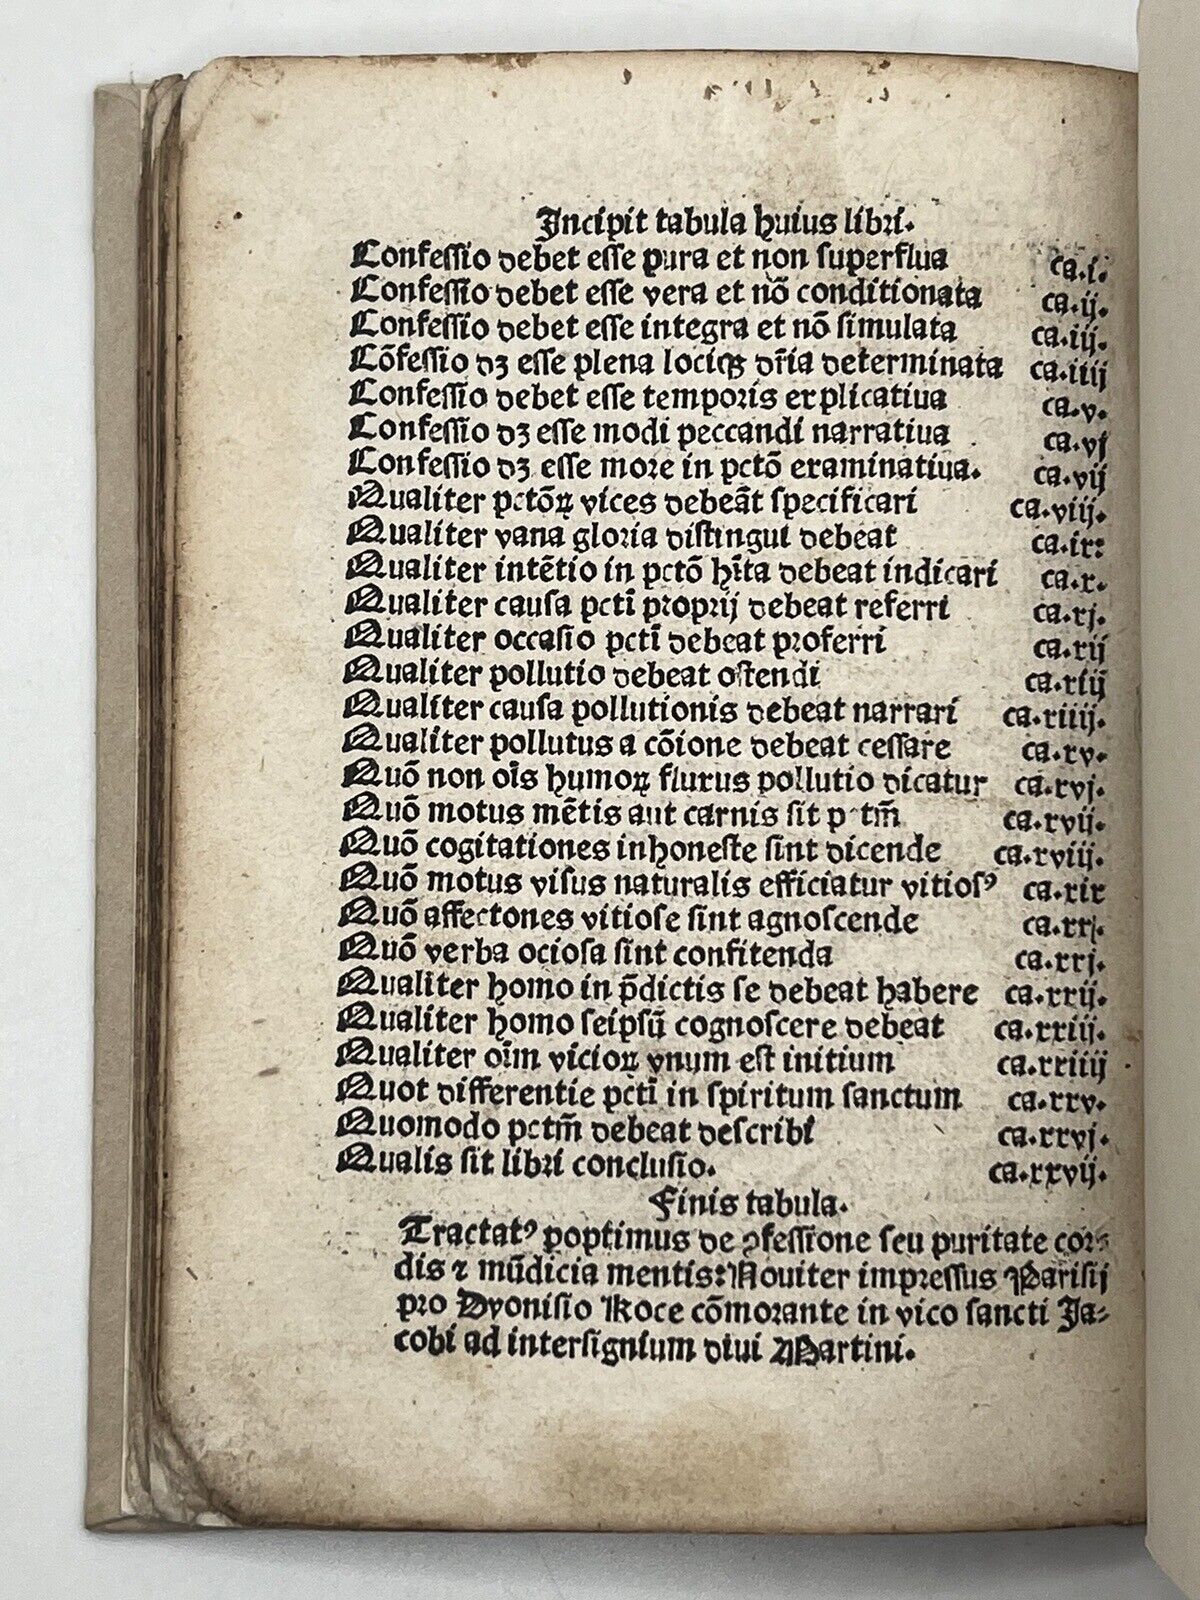 Incipit tabula huius libri.
Confessio debet esse pura et non superflua ca.i.
Confessio debet esse vera et nō conditionata ca.ij.
Confessio debet esse integra et nō simulata ca.iij.
Cōfessio dꝫ esse plena lociqꝫ dr̄ia determinata ca.iiij
Confessio debet esse temporis explicatiua ca.v.
Confessio dꝫ esse modi peccandi narratiua ca.vj
Confessio dꝫ esse more in pctō examinatiua. ca.vij
Qualiter pctōꝝ vices debeāt specificari ca.viij.
Qualiter vana gloria distingui debeat ca.ix:
Qualiter intētio in pctō hīta debeat indicari ca.x.
Qualiter causa pctī proprij debeat referri ca.xj.
Qualiter occasio pctī debeat proferri ca.xij
Qualiter pollutio debeat ostendi ca.xiij
Qualiter causa pollutionis debeat narrari ca.xiiij.
Qualiter pollutus a cōione debeat cessare ca.xv.
Quō non oīs humoꝝ fluxus pollutio dicatur ca.xvj.
Quō motus mētis aut carnis sit pctm̄ ca.xvij.
Quō cogitationes inhoneste sint dicende ca.xviij.
Quō motus visus naturalis efficiatur vitiosꝰ ca.xix
Quō affectones vitiose sint agnoscende ca.xxj.
Quō verba ociosa sint confitenda ca.xxj.
Qualiter homo in p̄dictis se debeat habere ca.xxij.
Qualiter homo seipsū cognoscere debeat ca.xxiij.
Qualiter oīm vicioꝝ vnum est initium ca.xxiiij
Quot differentie pctī in spiritum sanctum ca.xxv.
Quomodo pctm̄ debeat describi ca.xxvj.
Qualis sit libri conclusio. ca.xxvij.
Finis tabula.
Tractatꝰ poptimus de ꝯfessione seu puritate cor-
dis ⁊ mūdicia mentis: Nouiter impressus Parisij
pro Dyonisio Roce cōmorante in vico sancti Ja-
cobi ad intersignium diui Martini.